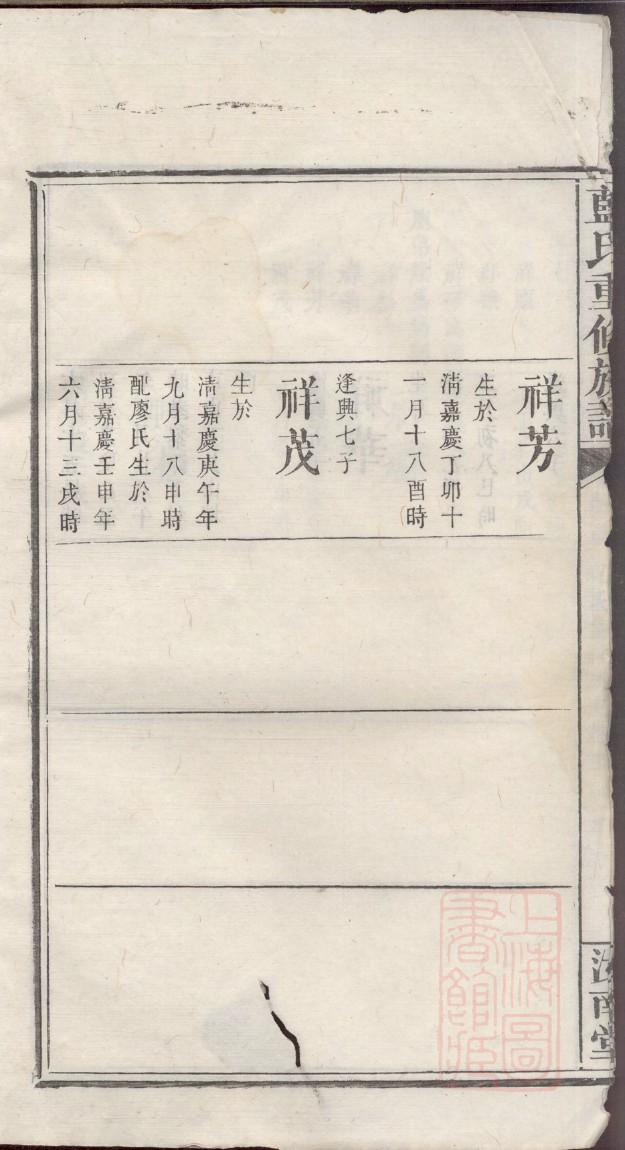 藍氏重修族譜
祥芳
生於
淸嘉慶丁卯十
一月十八酉時
逢興七子
祥茂
生於
淸嘉慶庚午年
九月十八申時
配廖氏生於
淸嘉慶壬申年
六月十三戌時
汝南堂
上海圖
書館藏